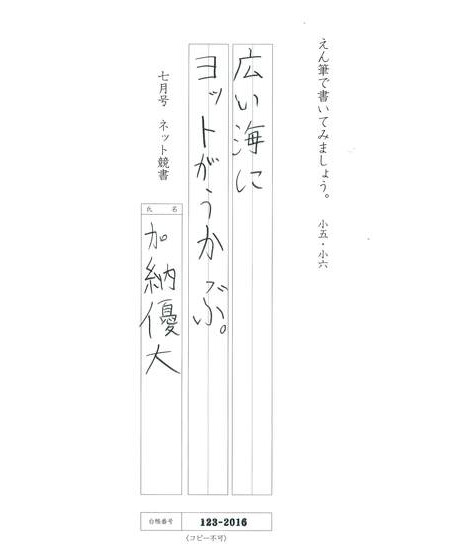 えん筆で書いてみましょう。 小五・小六
広い海に
ヨットがうかぶ。
七月号 ネット競書
氏名
加納優大
台帳番号 123-2016
(コピー不可)